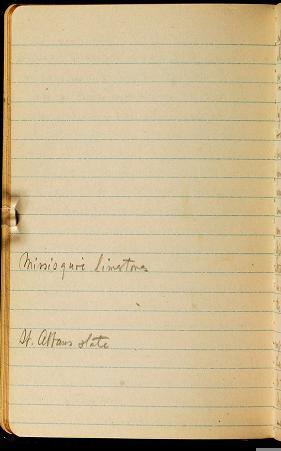 Missisquoi limestones
St. Albans slate